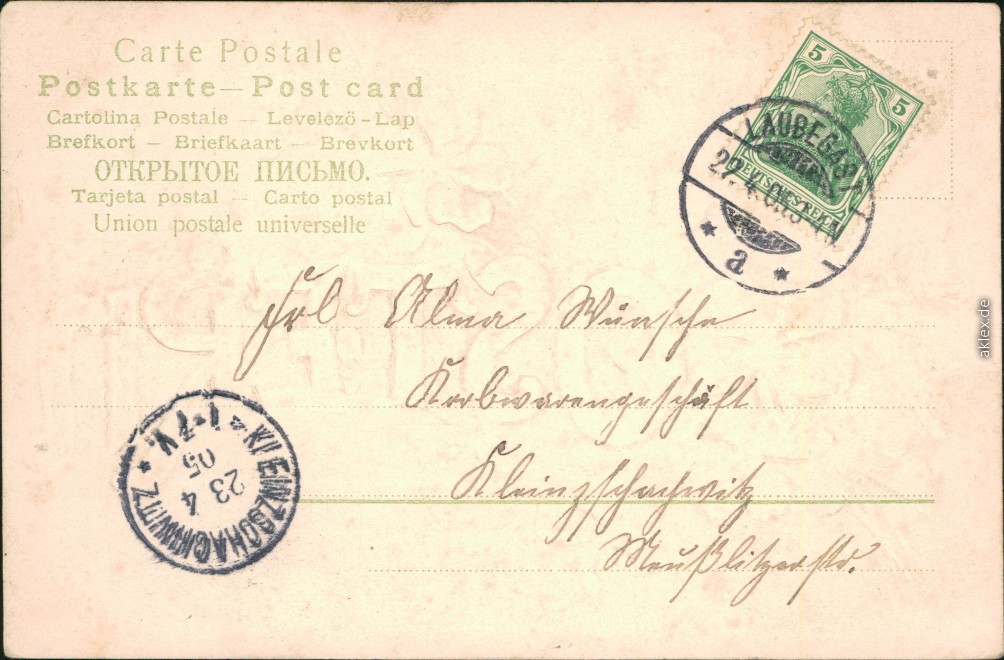 Carte Postale
Postkarte — Post card
Cartolina Postale — Levelező-Lap
Brefkort — Briefkaart — Brevkort
ОТКРЫТОЕ ПИСЬМО.
Tarjeta postal — Carto postal
Union postale universelle
5 5
DEUTSCHES REICH
LAUBEGAST
22. 4.
* a *
Frl Alma Wünsche
Korbwarengeschäft
Kleinzschachwitz
Meußlitzerstr.
* KLEINZSCHACHWITZ *
1-7 V.
23 4
05
aklex.de